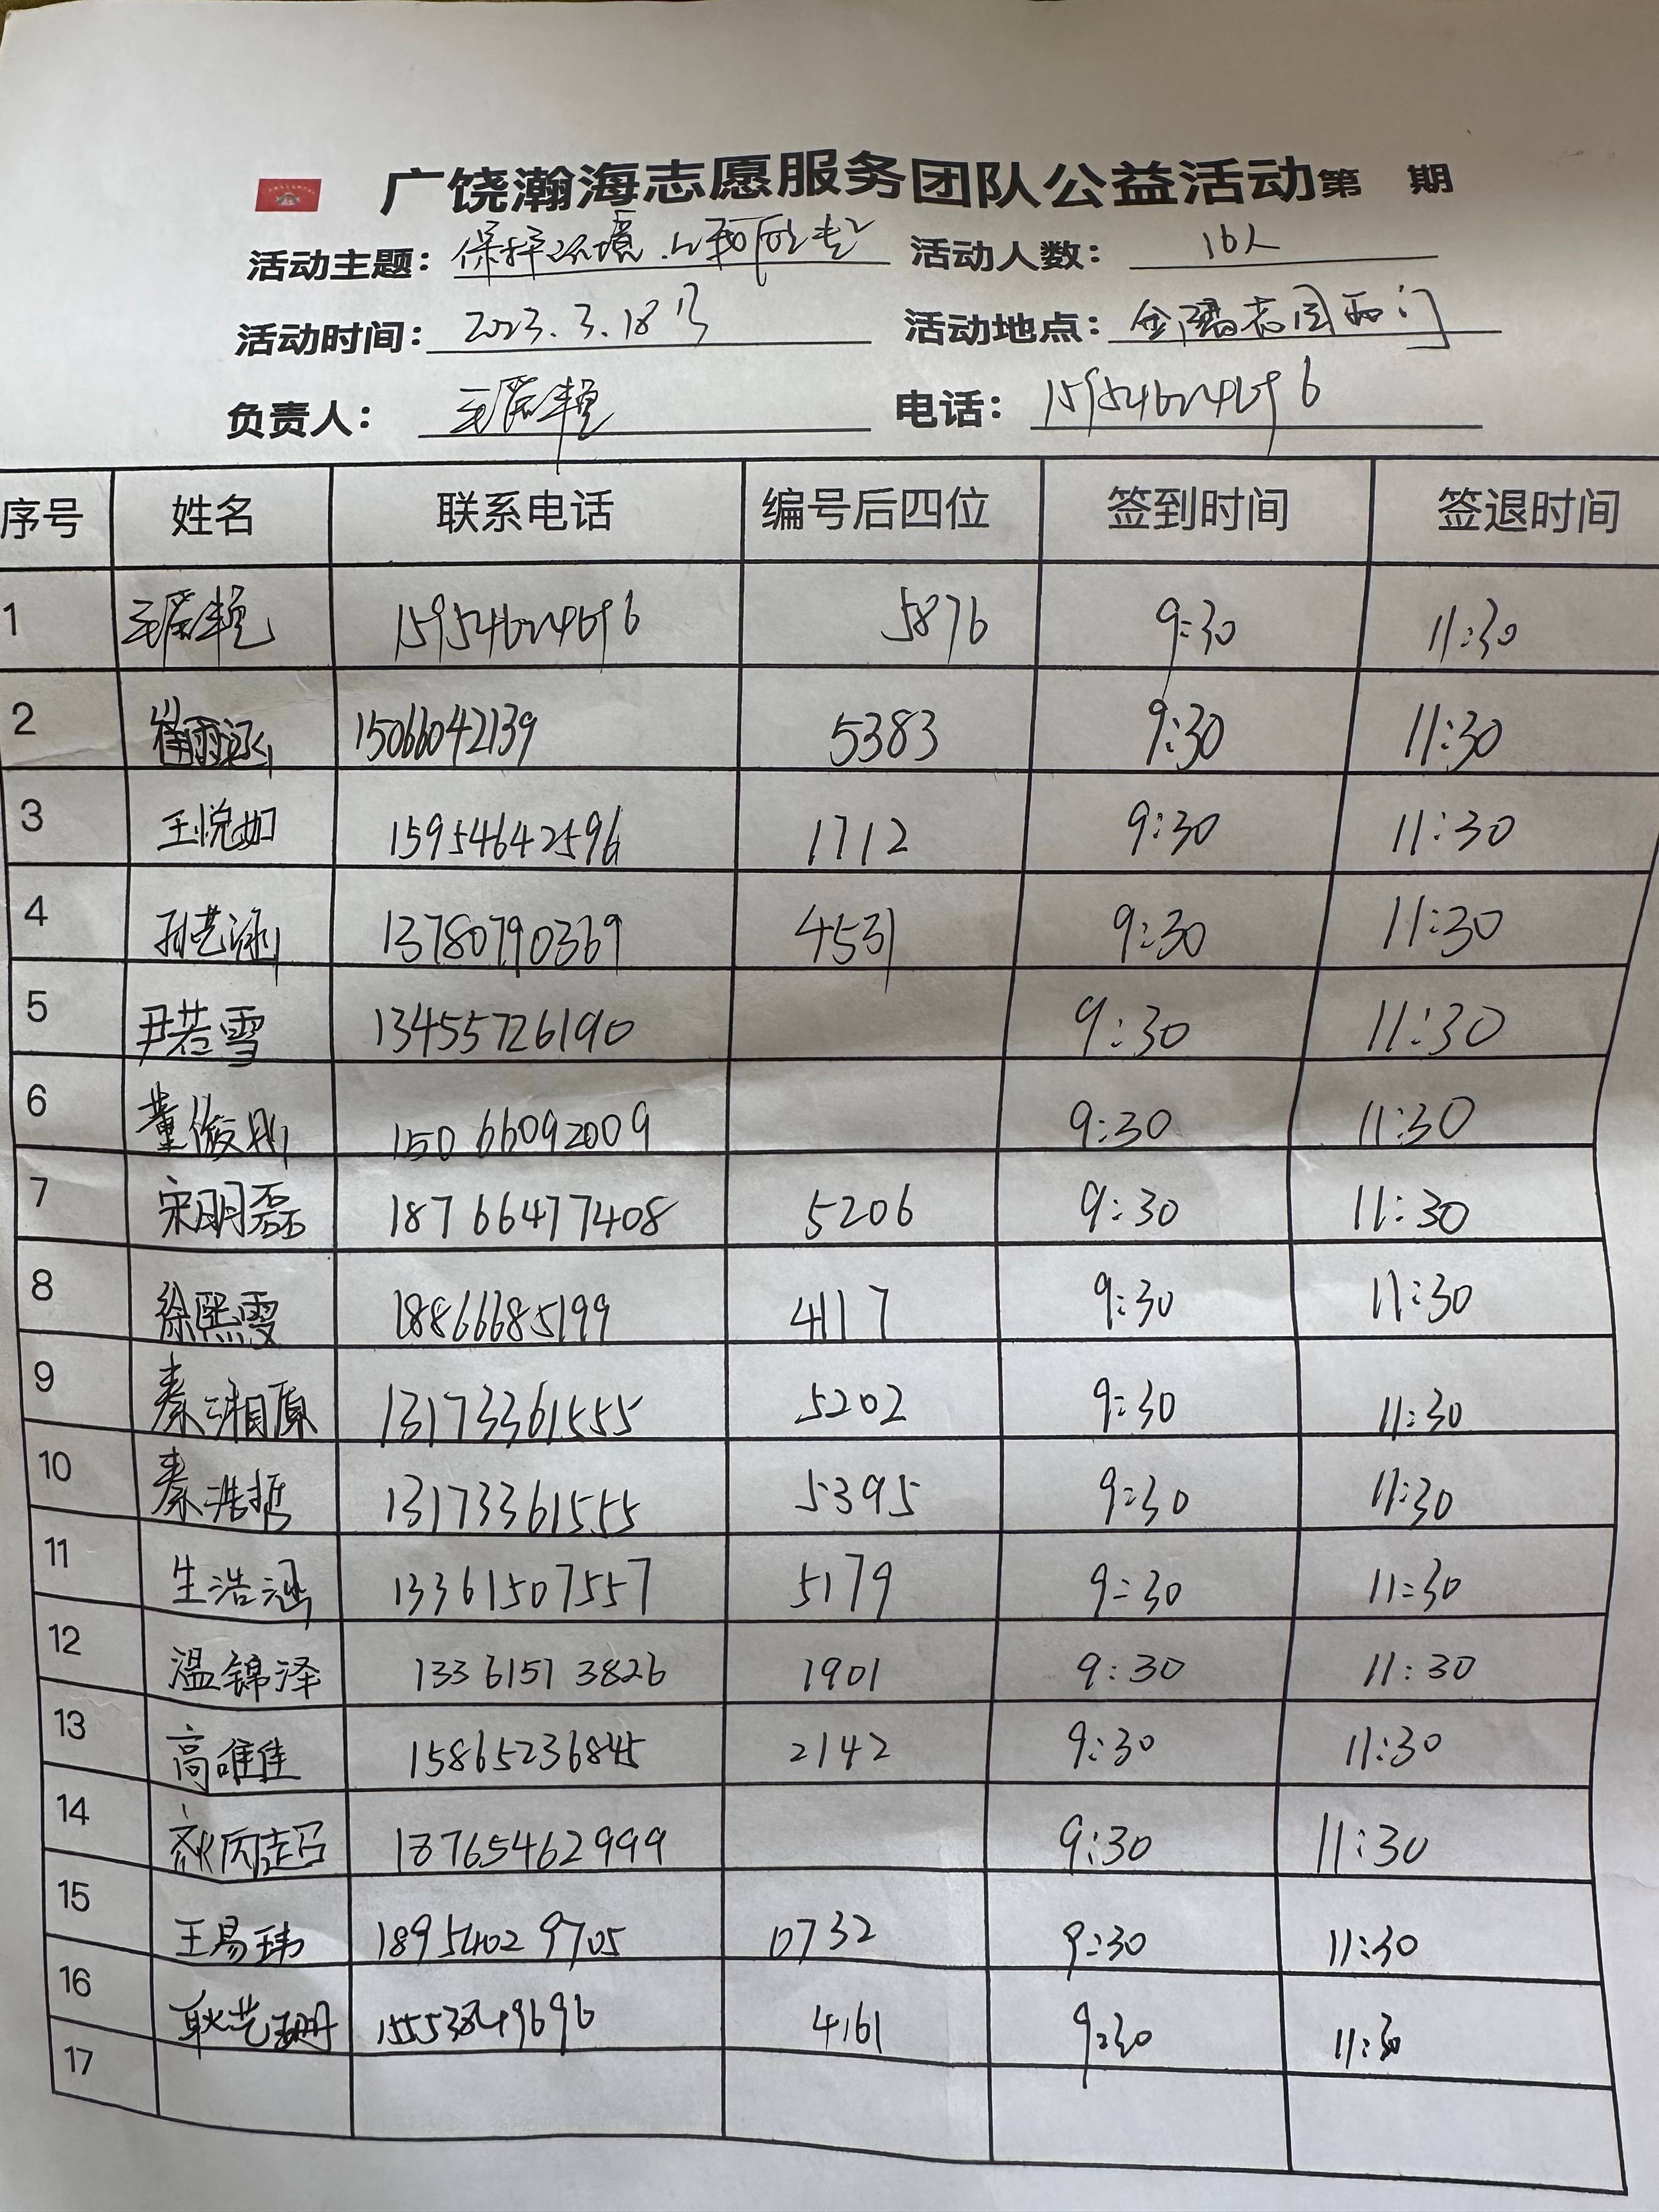 广饶瀚海志愿服务团队公益活动第 期
活动主题: 保护环境.从我做起 活动人数: 16人
活动时间: 2023.3.18号 活动地点: 西门
负责人: 电话:
序号 姓名 联系电话 编号后四位 签到时间 签退时间
1 5876 9:30 11:30
2 崔雨涵 15066042139 5383 9:30 11:30
3 王悦如 15954642596 1712 9:30 11:30
4 孙艺涵 13780790369 4531 9:30 11:30
5 尹若雪 13455726190 9:30 11:30
6 董俊刚 15066092009 9:30 11:30
7 宋明磊 18766477408 5206 9:30 11:30
8 徐熙雯 18866685199 4117 9:30 11:30
9 秦湘原 13173361555 5202 9:30 11:30
10 秦浩哲 13173361555 5395 9:30 11:30
11 生浩涵 13361507557 5179 9:30 11:30
12 温锦泽 13361513826 1901 9:30 11:30
13 高唯佳 15865236845 2142 9:30 11:30
14 18765462999 9:30 11:30
15 王易玮 18954029705 0732 9:30 11:30
16 耿艺珊 4161 9:30 11:30
17